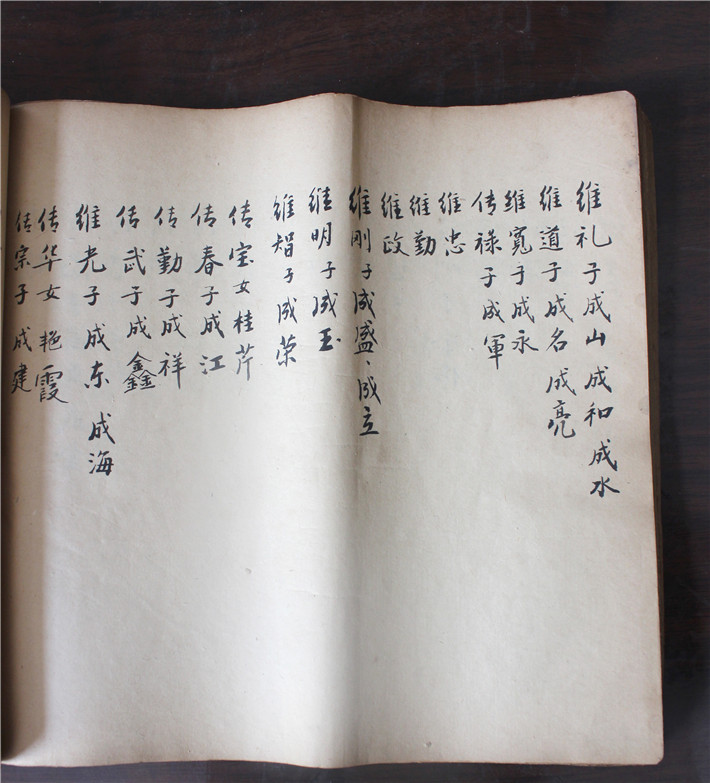 维礼子成山成和成水
维道子成名成亮
维寬子成永
传禄子成軍
维忠
维勤
维政
维刚子成盛、成立
维明子成玉
维智子成荣
传宝女桂芹
传春子成江
传勤子成祥
传武子成鑫
维光子成东成海
传华女艳霞
传宗子成建